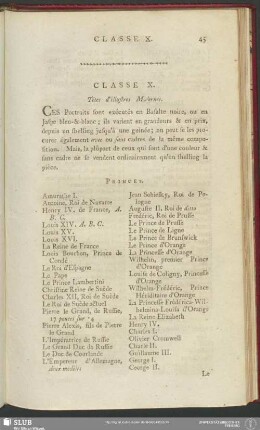 CLASSE X. 45
CLASSE X.
Têtes d'illustres Modernes.
CES Portraits sont exécutés en Basalte noire, ou en
Jaspe bleu-&-blanc; ils varient en grandeurs & en prix,
depuis un shelling jusqu'à une guinée; on peut se les pro-
curer également avec ou sans cadres de la même compo-
sition. Mais, la plûpart de ceux qui sont d'une couleur &
sans cadre ne se vendent ordinairement qu'un shelling la
piéce.
PRINCES.
Amurat I.
Antoine, Roi de Navarre
Henry IV, de France, A.
B. C.
Louis XIV, A. B. C.
Louis XV.
Louis XVI.
La Reine de France
Louis Bourbon, Prince de
Condé
Le Roi d'Espagne
Le Pape
Le Prince Lambertini
Christine Reine de Suède
Charles XII, Roi de Suède
Le Roi de Suède actuel
Pierre le Grand, de Russie,
17 pouces sur 14
Pierre Alexis, fils de Pierre
le Grand
L'Impératrice de Russie
Le Grand Duc de Russie
Le Duc de Courlande
L'Empereur d'Allemagne,
deux modèles
Jean Sobiesky, Roi de Po-
logne
Auguste II, Roi de
Fréderic, Roi de Prusse
Le Prince de Prusse
Le Prince de Ligne
Le Prince de Brunswick
Le Prince d'Orange
La Princesse d'Orange
Wilhelm, premier Prince
d'Orange
Louise de Coligny, Princesse
d'Orange
Wilhelm-Fréderic, Prince
Héréditaire d'Orange
La Princesse Fréderica-Wil-
helmina-Louisa d'Orange
La Reine Elizabeth
Henry IV,
Charles I.
Olivier Cromwell
Charles II.
Guillaume III.
George I.
George II.
Le
SLUB